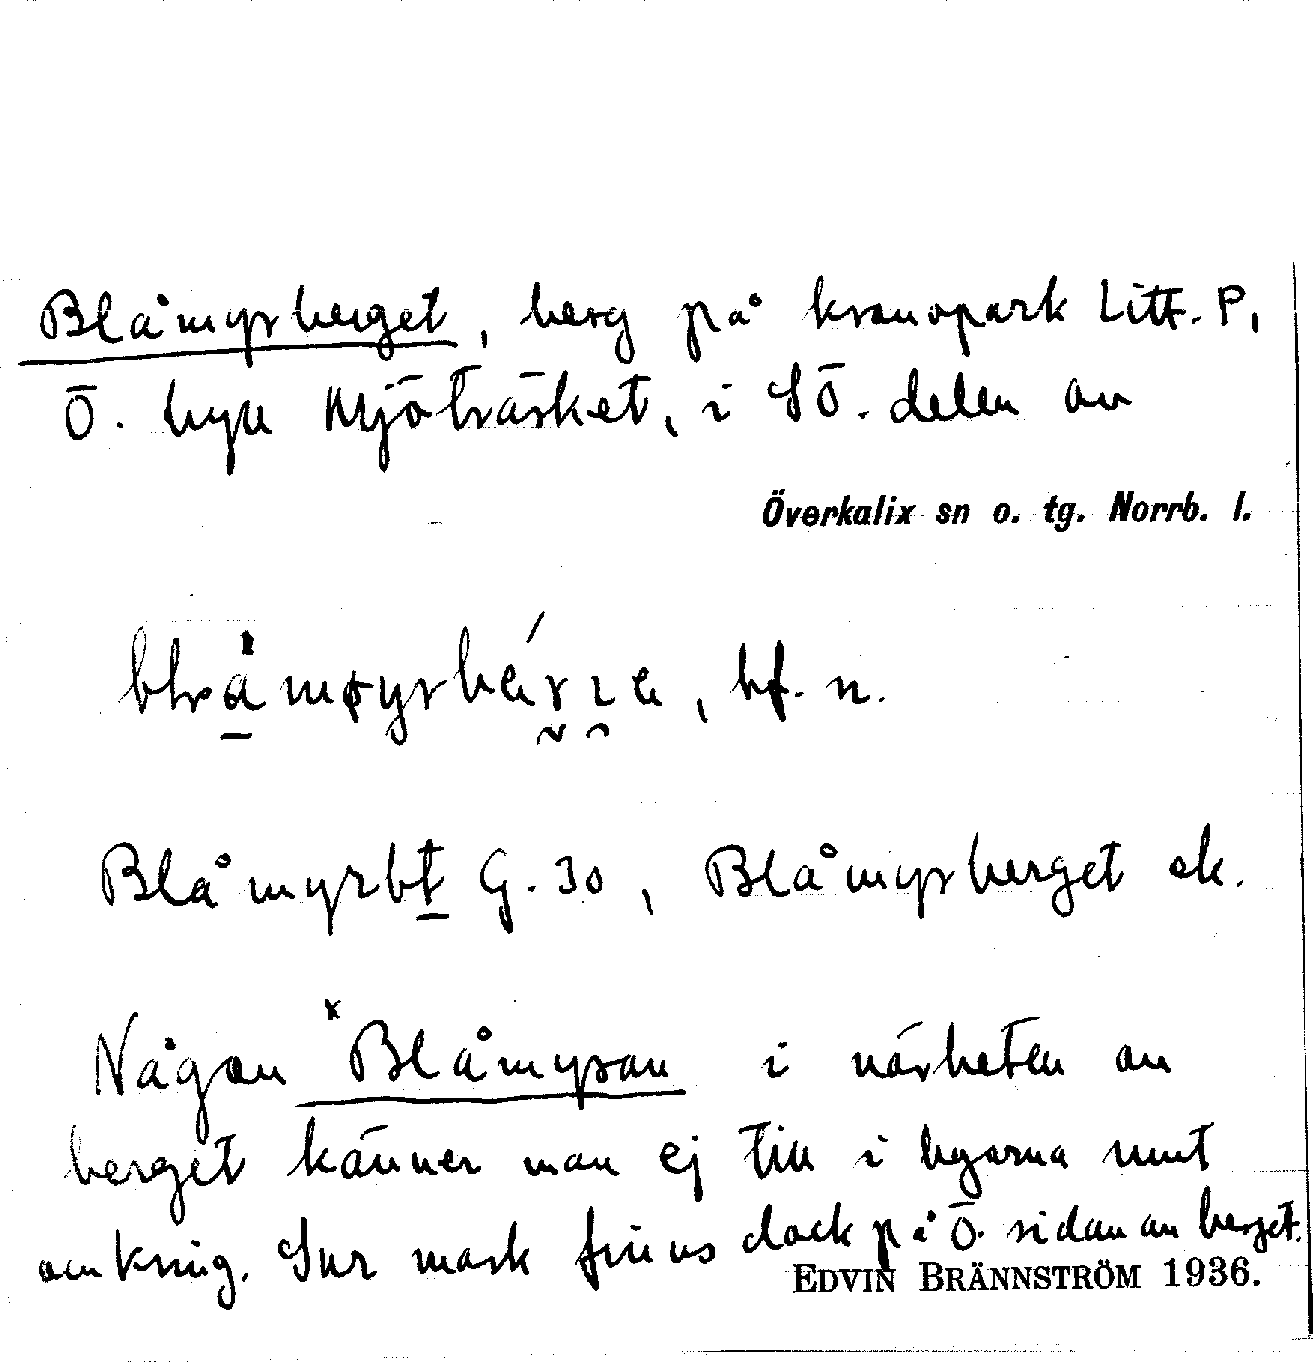 Blåmyrberget, berg på kronopark Litt. P,
Ö. byn Mjöträsket, i SÖ. delen av
Överkalix sn o. tg. Norrb. l.
bf. n.
Blåmyrbt G. 30, Blåmyrberget ek.
Någon *Blåmyran i närheten av
berget känner man ej till i byarna runt
omkring. Sur mark finns dock på Ö. sidan av berget.
EDVIN BRÄNNSTRÖM 1936.